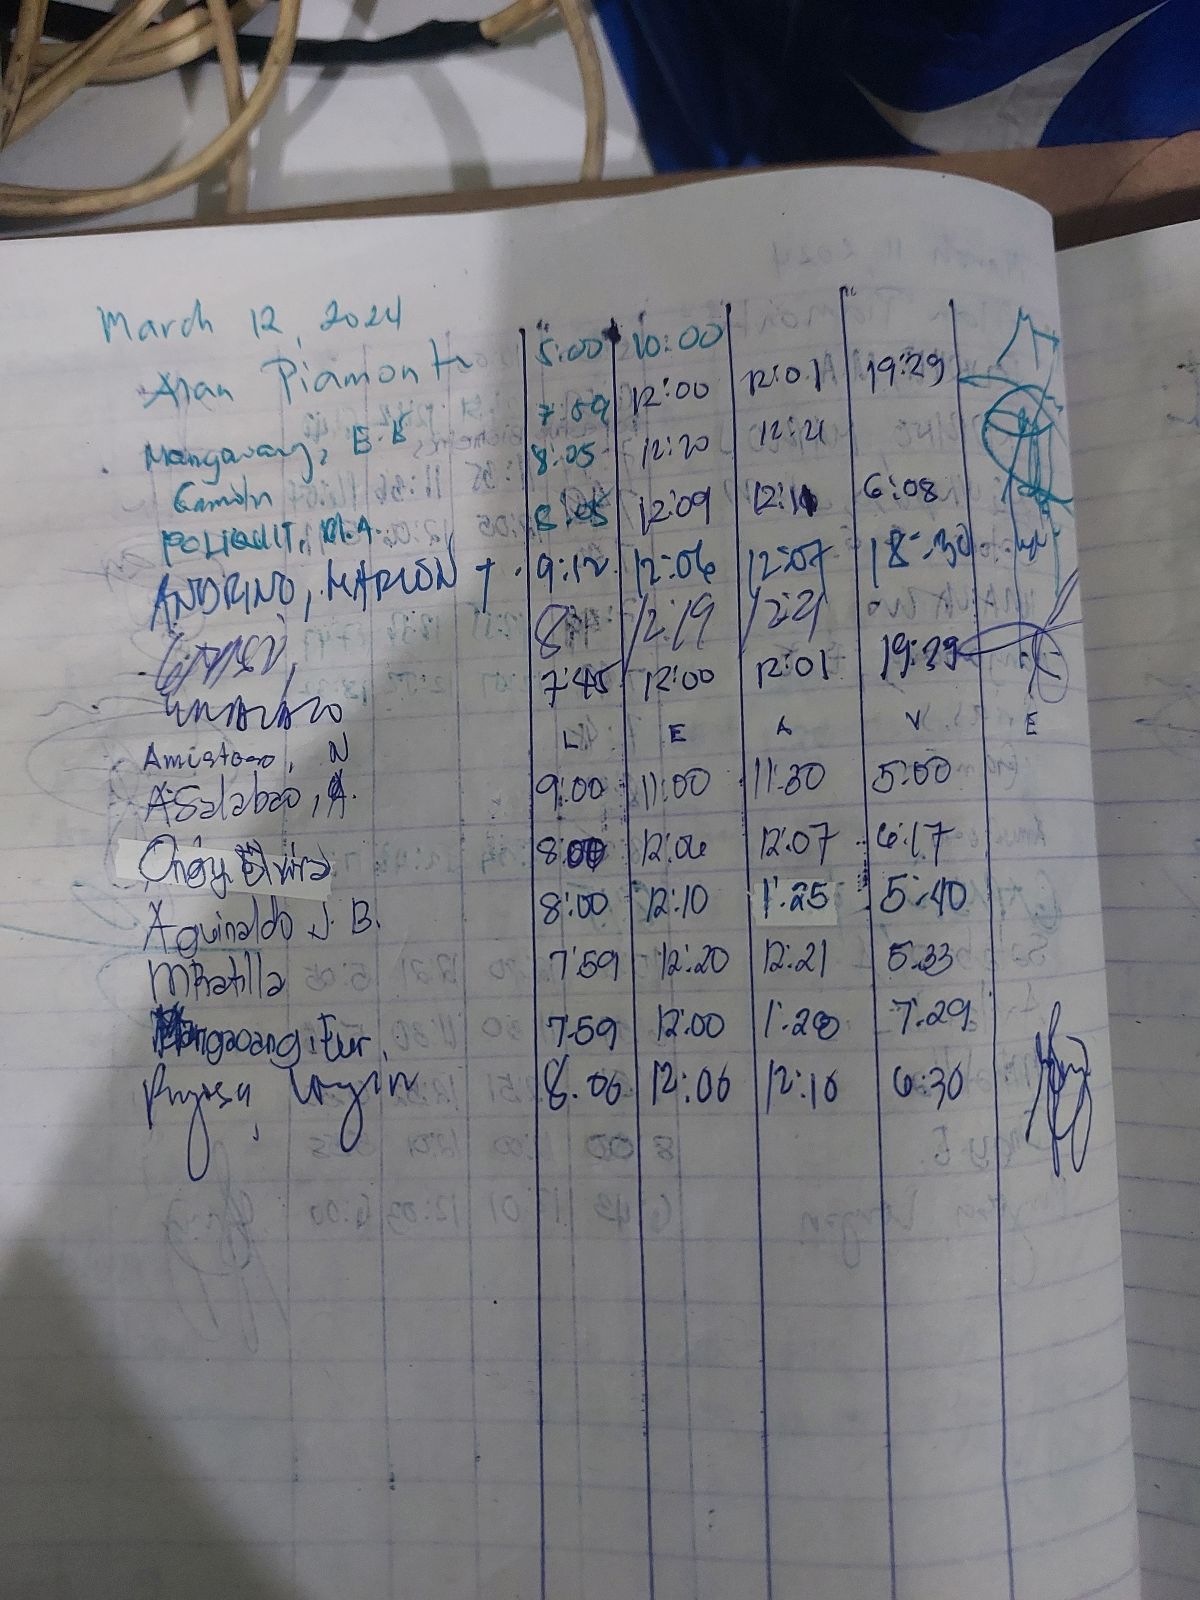 March 12, 2024
Alan Piamonte 5:00 10:00
Mangaoang, E. B 7:59 12:00 12:01 19:29
Camilin 8:05 12:20 12:21
POLIQUIT, M.A. 8:05 12:09 12:11 6:08
ANDRINO, MARLON T. 9:12 12:06 12:07 18:30
12:19 12:21
7:45 12:00 12:01 19:29
Amistoso, N L E A V E
Asalabao, A. 9:00 11:00 11:30 5:00
Elvira 8:00 12:06 12:07 6:17
Aguinaldo J. B. 8:00 12:10 1:25 5:40
MRatilla 7:59 12:20 12:21 5:33
Mangaoang, Eur. 7:59 12:00 1:28 7:29
8:06 12:06 12:10 6:30